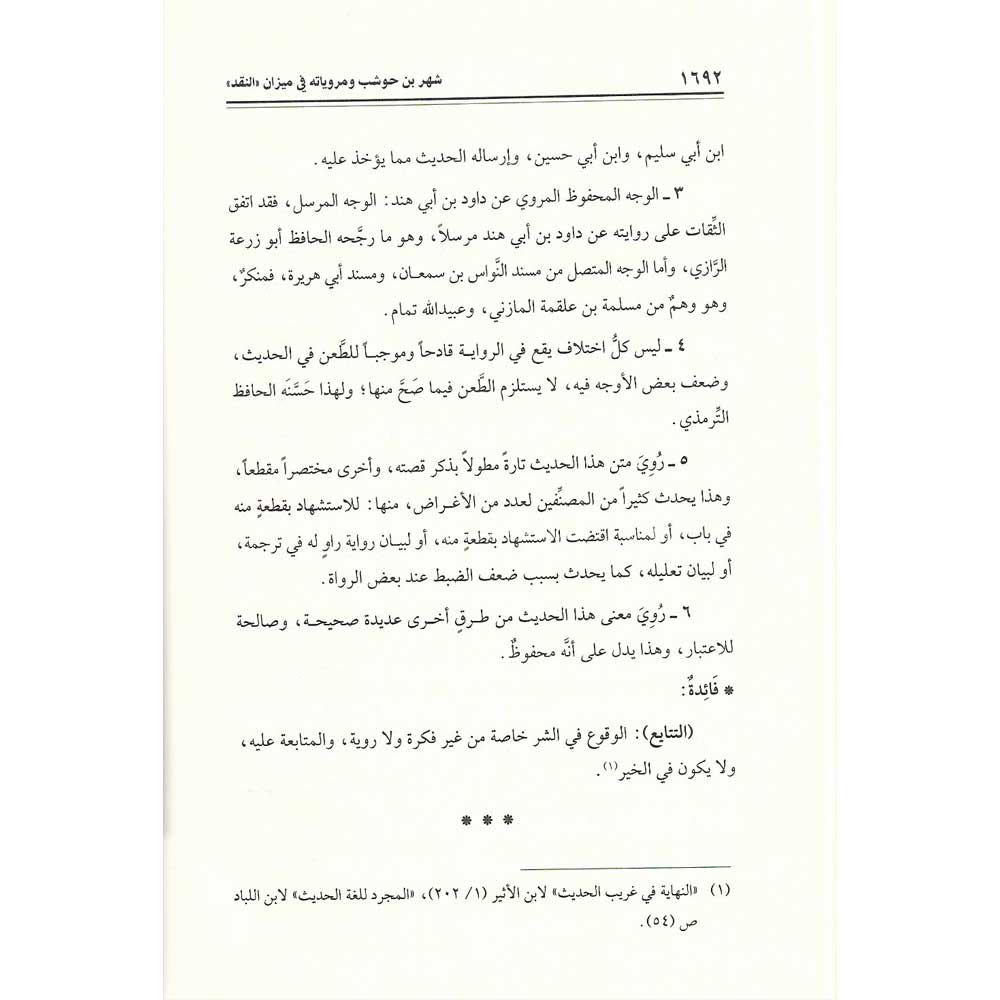 ١٦٩٢ شهر بن حوشب ومروياته في ميزان «النقد»
ابن أبي سليم، وابن أبي حسين، وإرساله الحديث مما يؤخذ عليه.
٣ ـ الوجه المحفوظ المروي عن داود بن أبي هند: الوجه المرسل، فقد اتفق
الثِّقات على روايته عن داود بن أبي هند مرسلاً، وهو ما رجَّحه الحافظ أبو زرعة
الرَّازي، وأما الوجه المتصل من مسند النَّواس بن سمعـان، ومسند أبي هريرة، فمنكرٌ،
وهو وهمٌ من مسلمة بن علقمة المازني، وعبيدالله تمام.
٤ ـ ليس كلُّ اختلاف يقع في الروايـة قادحاً وموجبـاً للطَّعن في الحديث،
وضعف بعض الأوجه فيه، لا يستلزم الطَّعن فيما صَحَّ منها؛ ولهذا حَسَّنَه الحافظ
التِّرمذي.
٥ ـ رُوِيَ متن هذا الحديث تارةً مطولاً بذكر قصته، وأخرى مختصراً مقطعاً،
وهذا يحدث كثيراً من المصنِّفين لعدد من الأغـراض، منها: للاستشهاد بقطعةٍ منه
في باب، أو لمناسبة اقتضت الاستشهاد بقطعةٍ منه، أو لبيـان رواية راوٍ له في ترجمة،
أو لبيان تعليله، كما يحدث بسبب ضعف الضبط عند بعض الرواة.
٦ ـ رُوِيَ معنى هذا الحديث من طـرقٍ أخـرى عديدة صحيحـة، وصالحة
للاعتبار، وهذا يدل على أنَّه محفوظٌ.
* فَائِدةٌ:
(التتايع): الوقوع في الشر خاصة من غير فكرة ولا روية، والمتابعة عليه،
ولا يكون في الخير(١).
* * *
(١) «النهاية في غريب الحديث» لابن الأثير (١/ ٢٠٢)، «المجرد للغة الحديث» لابن اللباد
ص (٥٤).